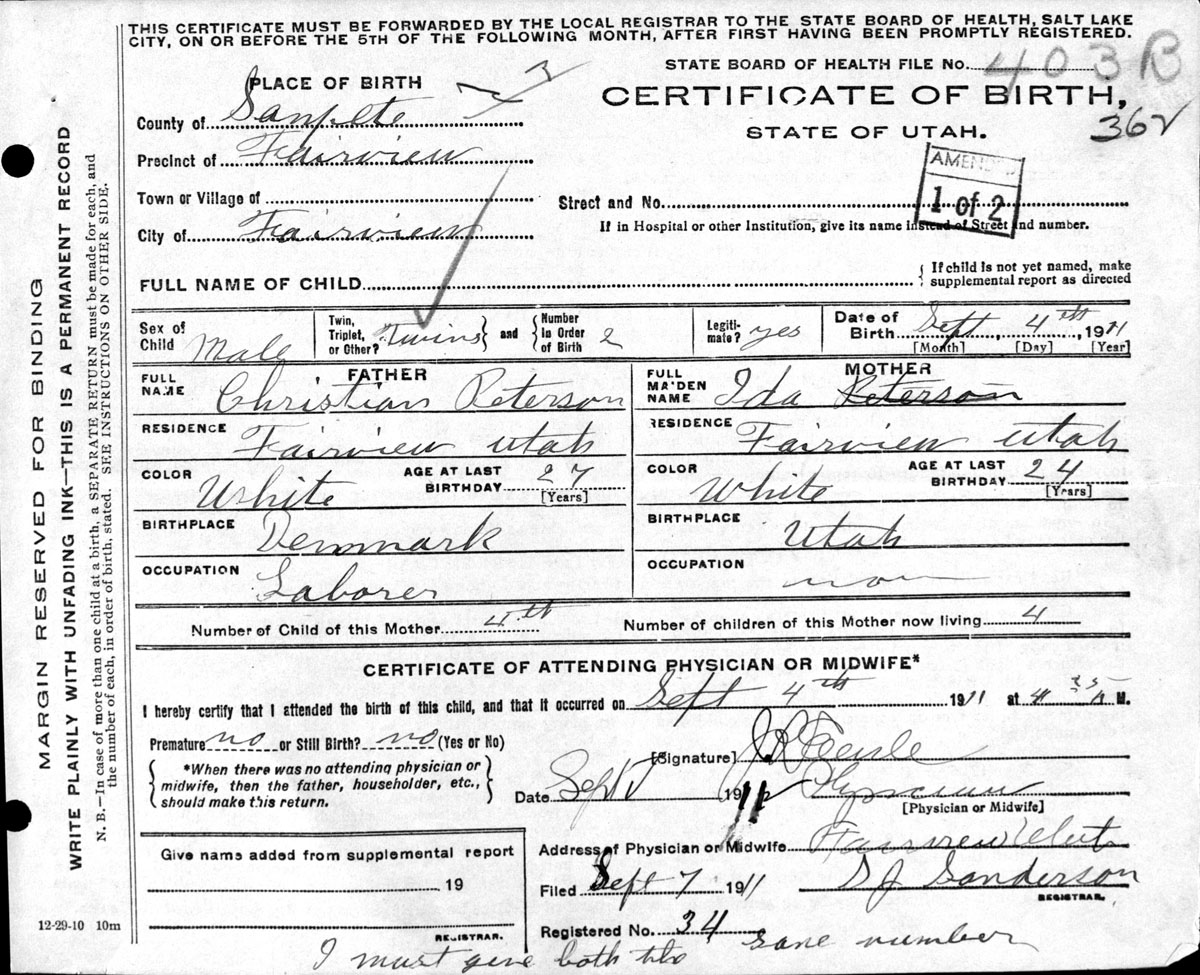 THIS CERTIFICATE MUST BE FORWARDED BY THE LOCAL REGISTRAR TO THE STATE BOARD OF HEALTH, SALT LAKE
CITY, ON OR BEFORE THE 5TH OF THE FOLLOWING MONTH, AFTER FIRST HAVING BEEN PROMPTLY REGISTERED.
STATE BOARD OF HEALTH FILE No. 403 B
PLACE OF BIRTH
CERTIFICATE OF BIRTH,
362
STATE OF UTAH.
County of Sanpete
Precinct of Fairview
AMENDED
1 of 2
Town or Village of
Street and No.
City of Fairview
If in Hospital or other Institution, give its name instead of Street and number.
FULL NAME OF CHILD
{ If child is not yet named, make
supplemental report as directed
Sex of Child Male
Twin, Triplet, or Other? Twins } and { Number in Order of Birth 2
Legiti-mate? yes
Date of Birth Sept 4th 1911
[Month] [Day] [Year]
FATHER
FULL NAME Christian Peterson
RESIDENCE Fairview Utah
COLOR White AGE AT LAST BIRTHDAY 27
[Years]
BIRTHPLACE Denmark
OCCUPATION Laborer
MOTHER
FULL MAIDEN NAME Ida Peterson
RESIDENCE Fairview Utah
COLOR White AGE AT LAST BIRTHDAY 24
[Years]
BIRTHPLACE Utah
OCCUPATION
Number of Child of this Mother 4th
Number of children of this Mother now living 4
CERTIFICATE OF ATTENDING PHYSICIAN OR MIDWIFE*
I hereby certify that I attended the birth of this child, and that it occurred on Sept 4th 1911 at 4 35 A M.
Premature no or Still Birth? no (Yes or No)
{ *When there was no attending physician or
midwife, then the father, householder, etc.,
should make this return. }
[Signature]
Date Sept 1911 Physician
[Physician or Midwife]
Address of Physician or Midwife Fairview Utah
Filed Sept 7 1911 S J Sanderson
REGISTRAR.
Registered No. 34
Give name added from supplemental report
19
REGISTRAR.
12-29-10 10m
I must give both the same number
MARGIN RESERVED FOR BINDING
WRITE PLAINLY WITH UNFADING INK—THIS IS A PERMANENT RECORD
N. B.—In case of more than one child at a birth, a SEPARATE RETURN must be made for each, and
the number of each, in order of birth, stated. SEE INSTRUCTIONS ON OTHER SIDE.